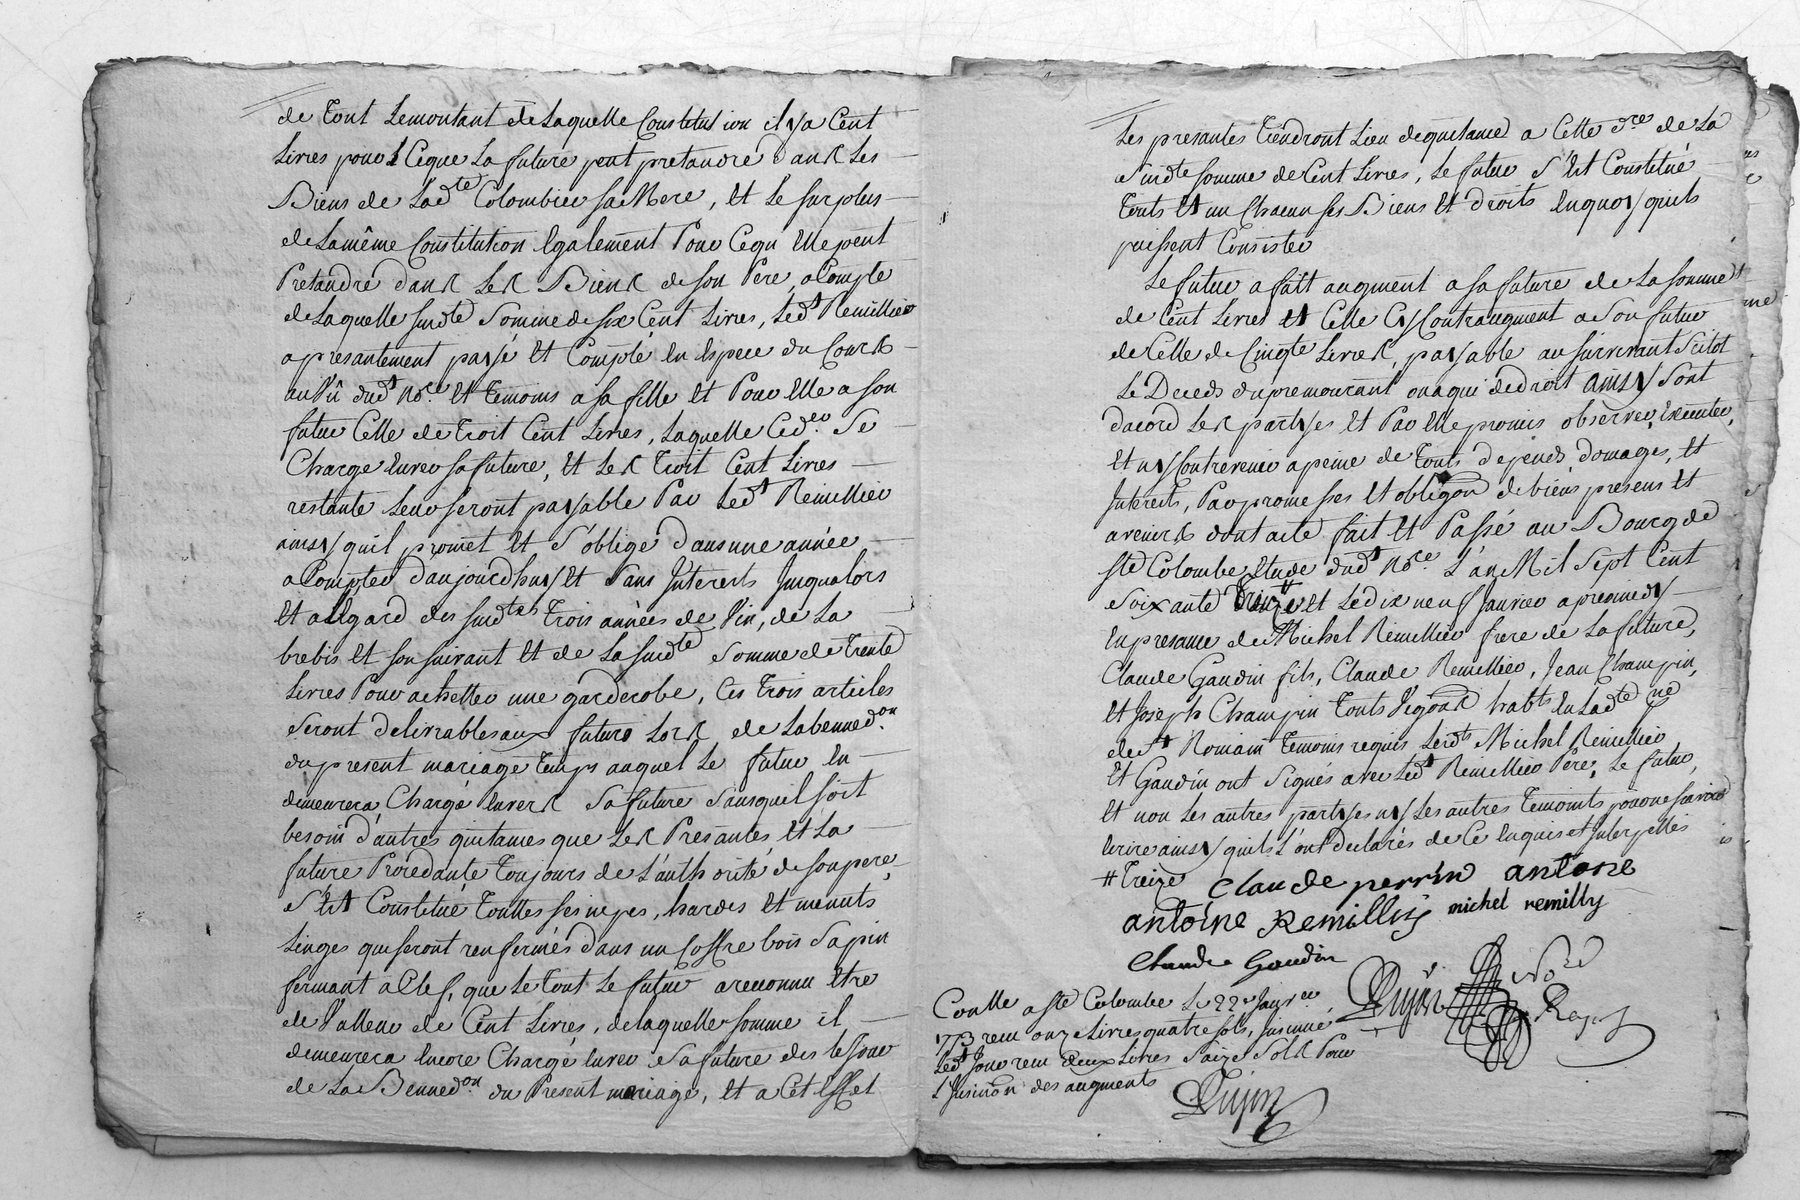 de tout le montant de laquelle Constitution il y a Cent
Livres pour Ceque La future peut pretandre dans Les
Biens de Ladte Colombier sa Mere, et Le surplus
de La même Constitution Egalement Pour Cequ Elle peut
Pretandre dans Les Biens de son Pere, a Compte
de Laquelle susdte Somme de six Cent Livres, Ledt Remillier
a presantement payé et Compté en Espece du Cours
au Vû dudt Nore et temoins a sa fille et Pour Elle a son
futur Celle de troit Cent Livres, Laquelle Ced. Se
Charge Enver sa future, et Les troit Cent Livres
restante Leur seront payable Par Ledt Remillier
ainsy quil promet et S'oblige Dans une année
a Compter d'aujourdhuy et Sans Interests Jusqualors
et a l'Egard des susdtes trois années de Vin, de La
brebis et son suivant et de La susdte Somme de trente
Livres Pour achetter une garderobe, Ces trois articles
Seront delivrables aux futurs Lors de La bennedon
du present mariage temps auquel Le futur En
demeurera Chargé Envers Sa future Sans quil soit
besoin d'autres quitances que Les Presantes, et La
future Procedante toujours de L'authorité de son pere,
S'est Constitué touttes ses nipes, hardes et menuts
Linges qui seront renfermés dans un Coffre bois Sapin
fermant a Clef, que Le tout Le futur a reconnu Etre
de Valleur de Cent Livres, de laquelle somme il
demeurera Encore Chargé Enver Sa future des le Jour
de La Bennedon du Present mariage, et a Cet Effet
Les presantes tiendront Lieu de quitance a Cette dre de La
Susdte somme de Cent Livres, Le futur S'est Constitué
touts et un Chacun ses Biens et droits En quoy quils
puissent Consister
Le futur a fait augment a sa future de La somme
de Cent Livres et Celle Cy Contraugment a Son futur
de Celle de Cinqte Livres, payable au survivant Sitôt
Le Deceds du premourant ou a qui de droit ainsy Sont
dacord Les partyes et Par Elle promis observer, Executer,
et ny Contrevenir a peine de touts depends, domages, et
Interests, Par promesses et obligon de biens presens et
avenirs dont acte fait et Passé au Bourg de
Ste Colombe Etude dudt Nore L'an Mil Sept Cent
Soixante # et Le dix neuf Janvier apresmidy
En presance de Michel Remillier frere de La future,
Claude Gaudin fils, Claude Remillier, Jean Champin,
et Joseph Champin touts Vigons habts En Ladte
de St Romain temoins requis Lesdts Michel Remillier
et Gaudin ont Signés avec Ledt Remillier Pere, Le futur,
et non Les autres partyes ny Les autres temoints pour ne Savoir
Ecrire ainsy quils L'ont declarés de Ce Enquis et Interpellés
# treize claude perrin antone
antoine Remillis michel remilly
Claude Gaudin
Dujon
Conlle a Ste Colombe Le 22e Janvier
1773 reçu onze Livres quatre sols, Insinué
Ledt Jour reçu deux Livres Saize Sols Pour
L'Insinuon des augments
Dujon